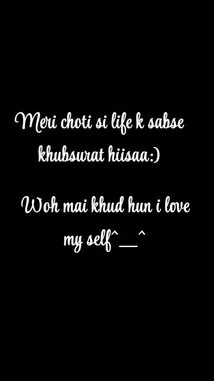 Meri choti si life k sabse
khubsurat hiisaa:)
Woh mai khud hun i love
my self^__^